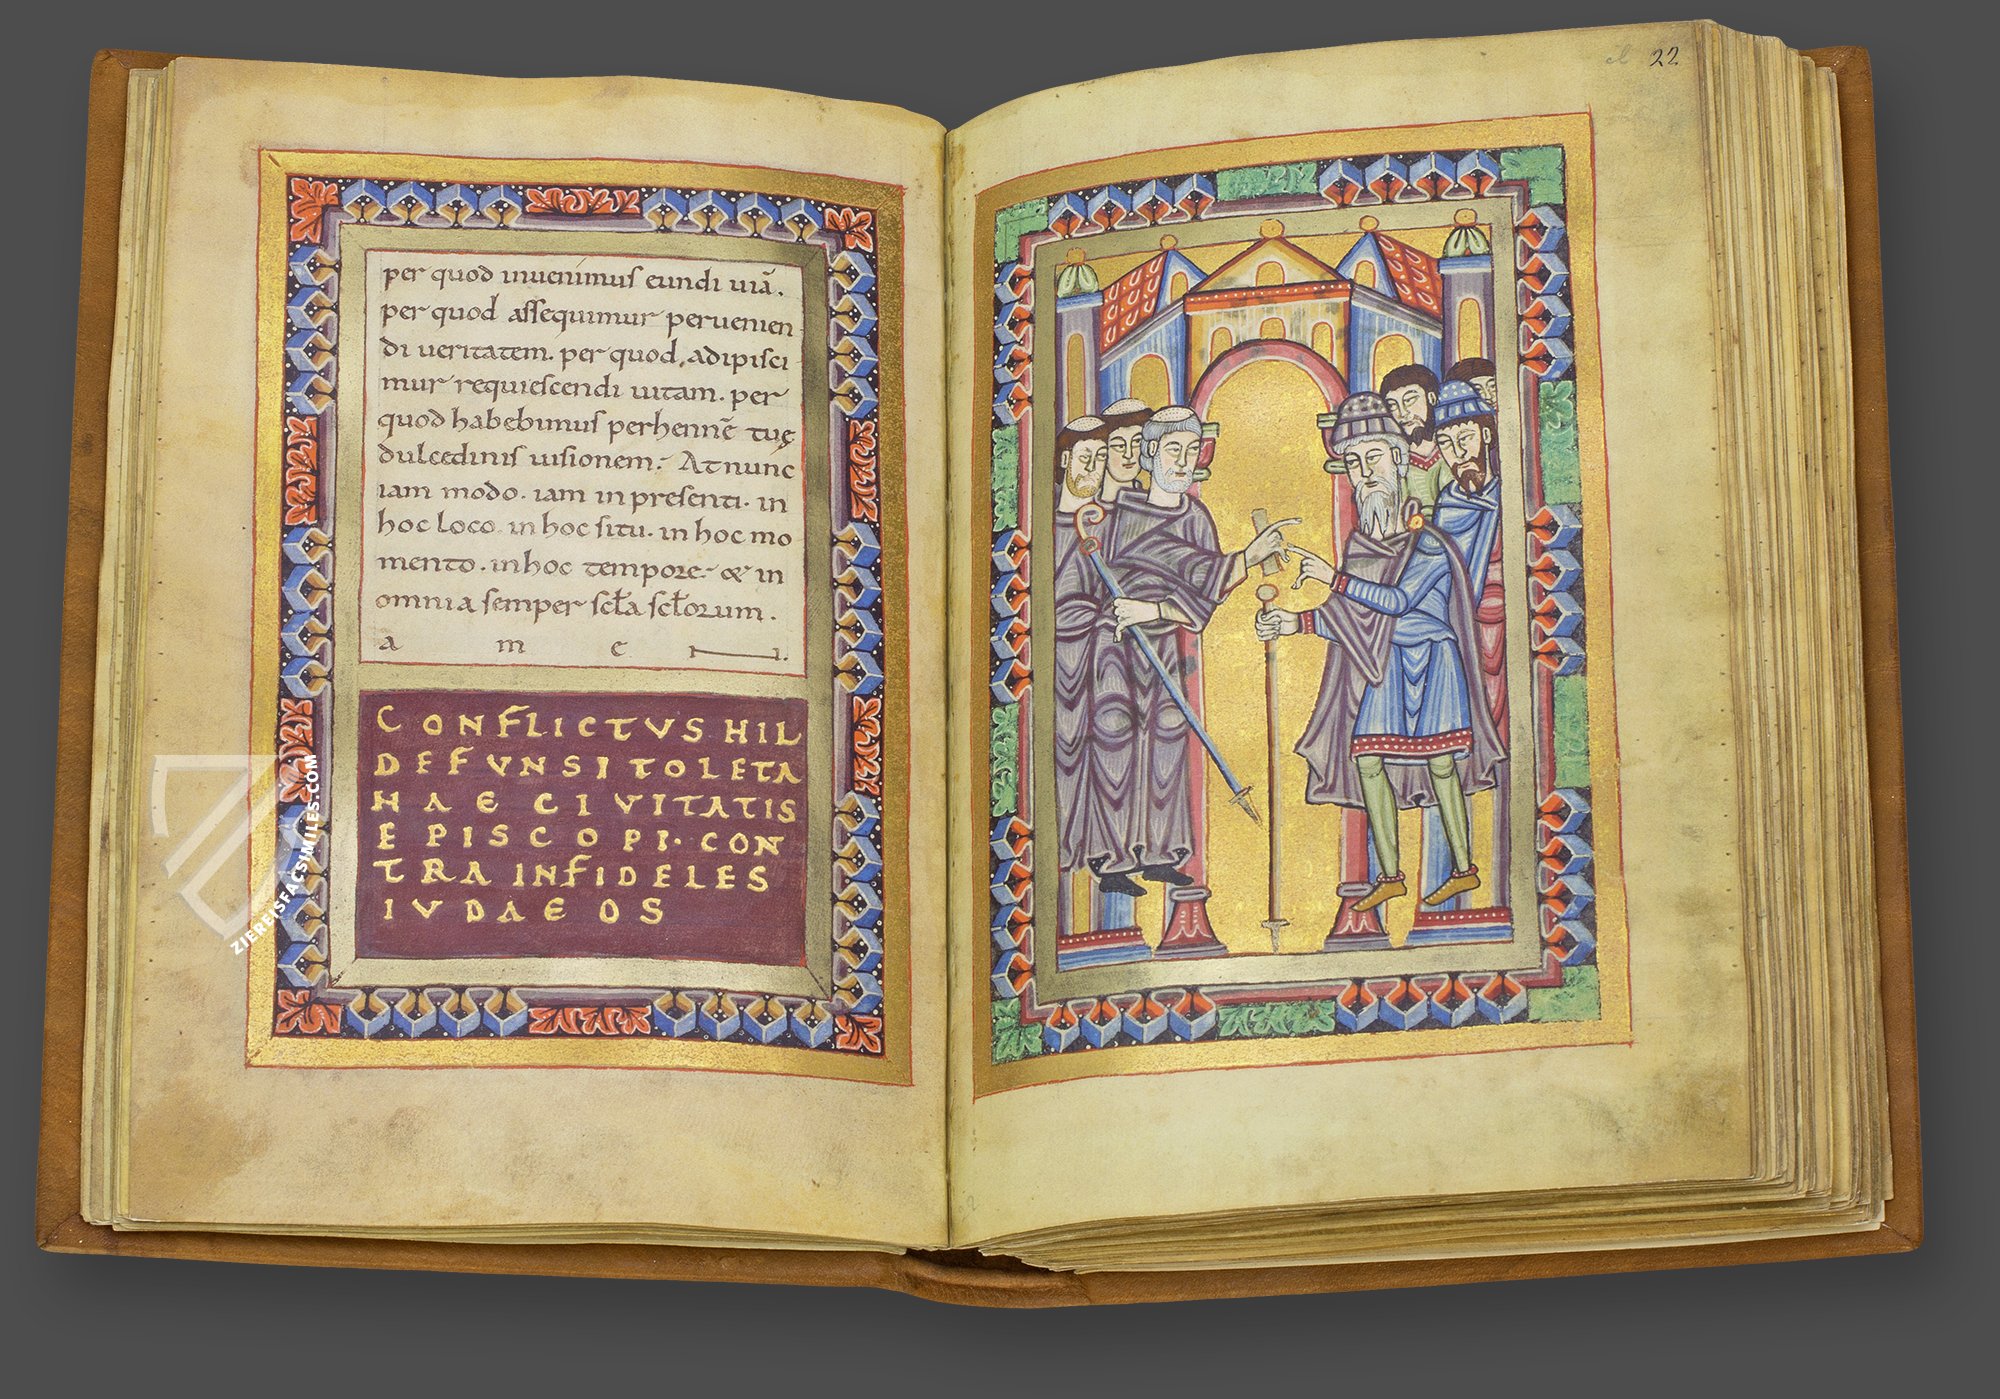 per quod inuenimus eundi uiā.
per quod assequimur peruenien
di ueritatem. per quod. adipisci
mur requiescendi uitam. per
quod habebimus perhennē tuę
dulcedinis uisionem. At nunc
iam modo. iam in presenti. in
hoc loco. in hoc situ. in hoc mo
mento. in hoc tempore. & in
omnia semper scła scłorum.
a m e n.
CONFLICTVS HIL
DEFVNSI TOLETA
NAE CIVITATIS
EPISCOPI. CON
TRA INFIDELES
IVDAEOS
22
ZIEREISFACSIMILES.COM